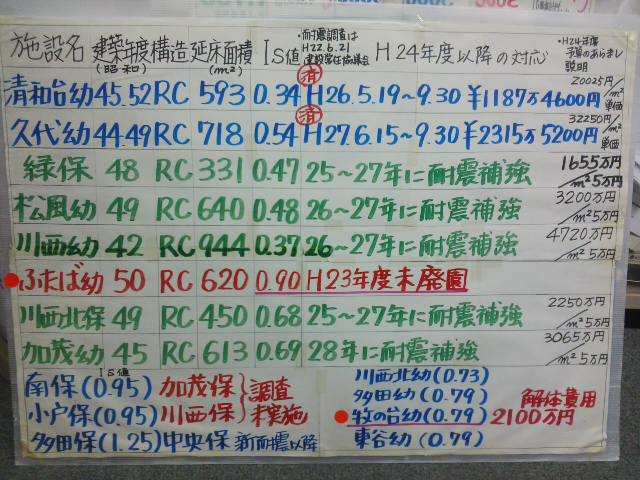 施設名 建築年度(昭和) 構造 延床面積(m²) IS値 ・耐震調査はH22.6.21建設常任協議会 H24年度以降の対応 ・H24年度予算のあらまし説明
清和台幼 45.52 RC 593 0.34 済 H26.5.19〜9.30 ¥1187万4600円 20025円/m²単価
久代幼 44.49 RC 718 0.54 済 H27.6.15〜9.30 ¥2315万5200円 32250円/m²単価
緑保 48 RC 331 0.47 25〜27年に耐震補強 1655万円/m²5万円
松風幼 49 RC 640 0.48 26〜27年に耐震補強 3200万円/m²5万円
川西幼 42 RC 944 0.37 26〜27年に耐震補強 4720万円/m²5万円
●ふたば幼 50 RC 620 0.90 H23年度末廃園
川西北保 49 RC 450 0.68 25〜27年に耐震補強 2250万円/m²5万円
加茂幼 45 RC 613 0.69 28年に耐震補強 3065万円/m²5万円
IS値
南保(0.95) 加茂保}調査 川西北幼(0.73)
小戸保(0.95) 川西保}未実施 多田幼(0.79) 解体費用
●牧の台幼(0.79) 2100万円
多田保(1.25) 中央保 新耐震以降 車谷幼(0.79)